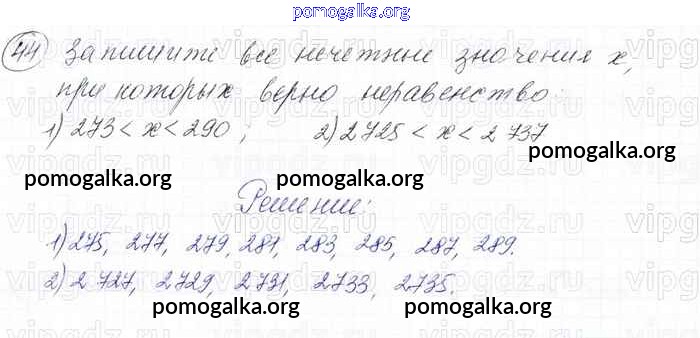 pomogalka.org
44 Запишите все нечетные значения x,
при которых верно неравенство:
1) 273 < x < 290 ; 2) 2 725 < x < 2 737
pomogalka.org
pomogalka.org pomogalka.org
Решение:
1) 275, 277, 279, 281, 283, 285, 287, 289.
2) 2 727, 2729, 2 731, 2733, 2735.
pomogalka.org pomogalka.org